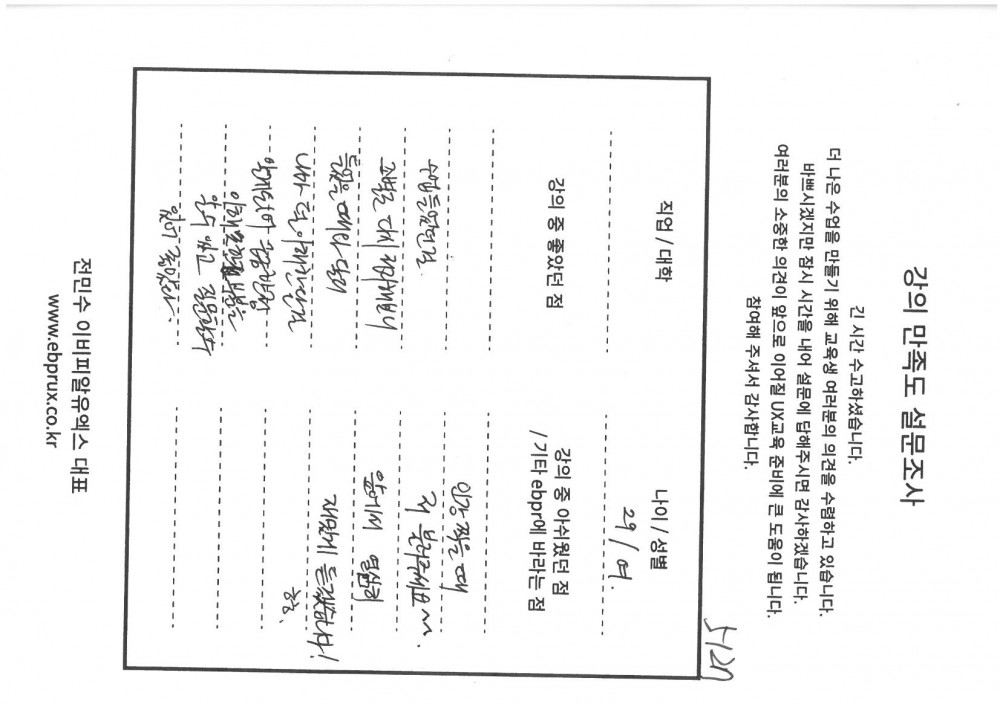 강의 만족도 설문조사
긴 시간 수고하셨습니다.
더 나은 수업을 만들기 위해 교육생 여러분의 의견을 수렴하고 있습니다.
바쁘시겠지만 잠시 시간을 내어 설문에 답해주시면 감사하겠습니다.
여러분의 소중한 의견이 앞으로 이어질 UX교육 준비에 큰 도움이 됩니다.
참여해 주셔서 감사합니다.
5/27
직업 / 대학
나이 / 성별
29 / 여.
강의 중 좋았던 점
수업 들었던걸
교별로 다시 정리해보니
들었을 때보다 더
내가 더 이해한건지
있고 질문할수
있어 좋았다.
강의 중 아쉬웠던 점
/ 기타 ebpr에 바라는 점
인강 찍을 때
저 불러주세요~~.
앞에서 열심히
재밌게 듣겠습니다!
전민수 이비피알유엑스 대표
www.ebprux.co.kr